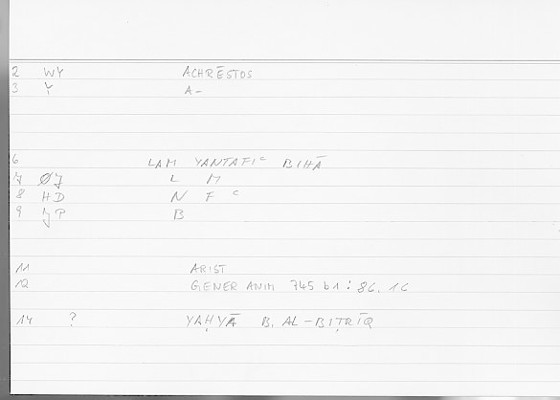 2 WY ACHRĒSTOS
3 Y A-
6 LAM YANTAFIᶜ BIHĀ
7 ØJ L M
8 HD N F ᶜ
9 JP B
11 ARIST
12 GENER ANIM 745 b1 : 86, 16
14 ? YAḤYĀ B. AL-BIṬRĪQ